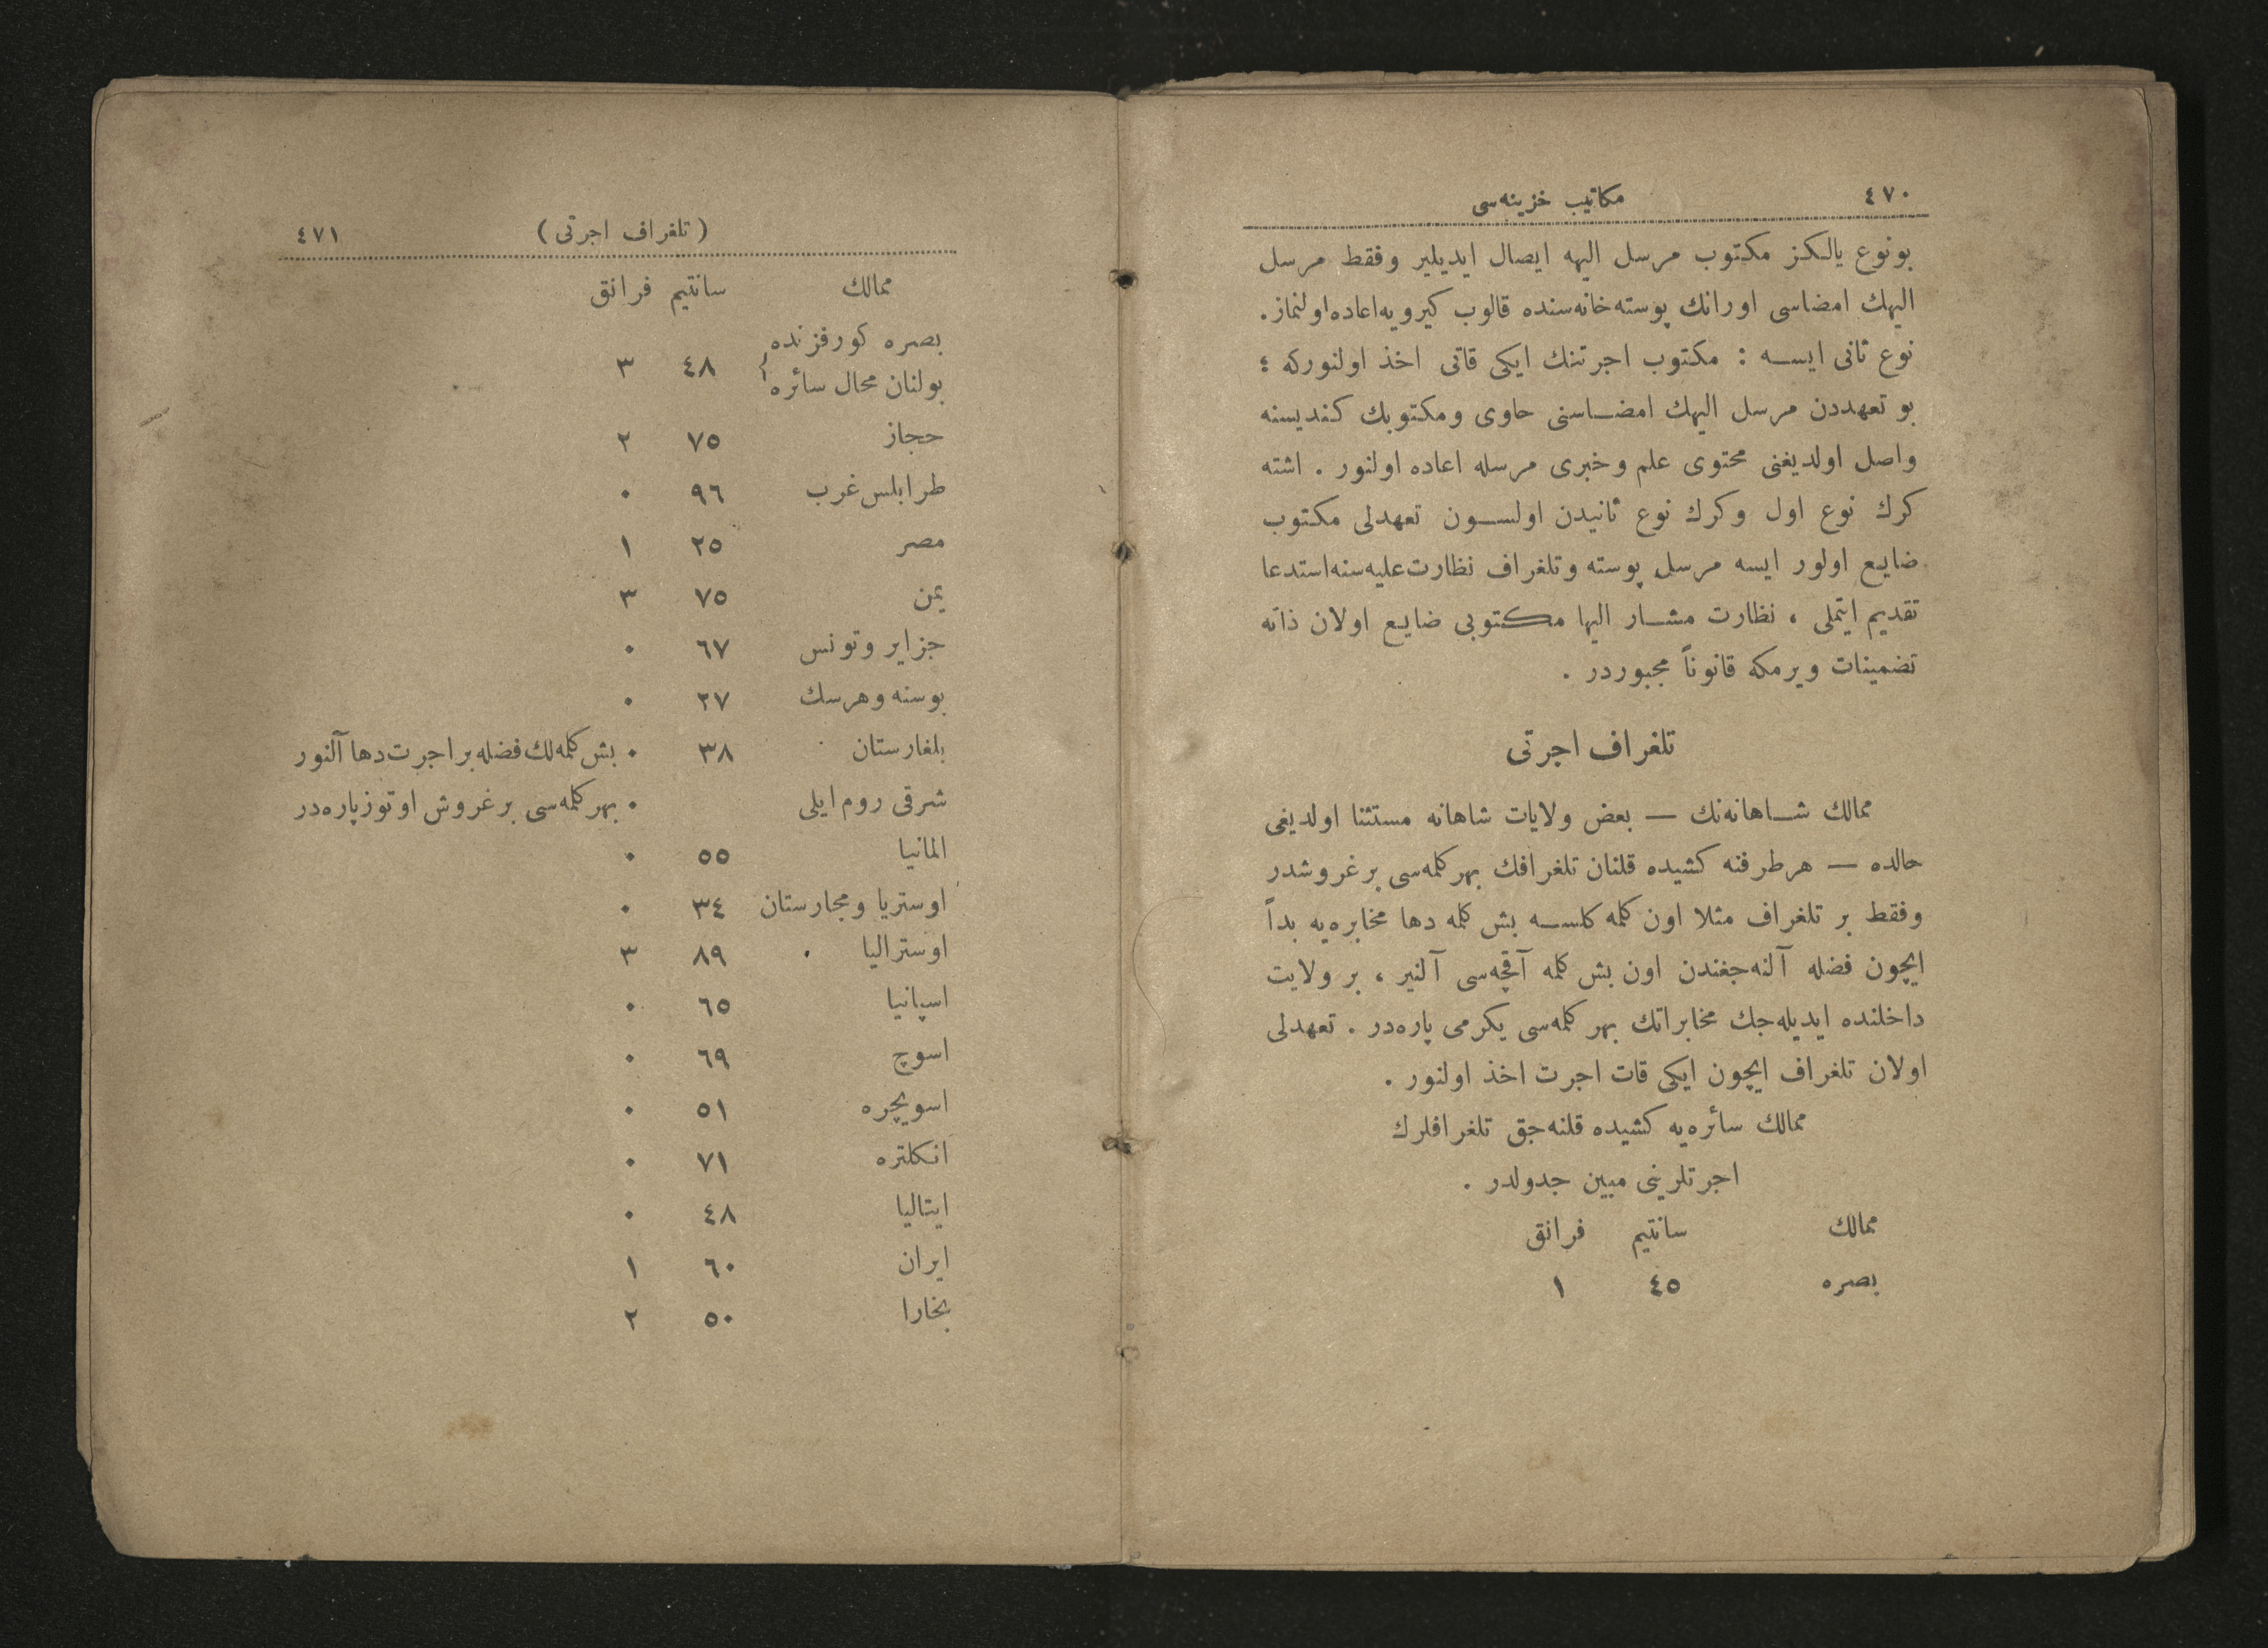 ٤٧٠ مكاتيب خزينه‌سى
بونوع يالكز مكتوب مرسل اليهه ايصال ايديلير وفقط مرسل
اليهك امضاسى اورانك پوسته‌خانه‌سنده قالوب كيرويه‌اعاده‌اولنماز.
نوع ثانى ايسه : مكتوب اجرتنك ايكى قاتى اخذ اولنوركه ؛
بو تعهددن مرسل اليهك امضاسنى حاوى ومكتوبك كنديسنه
واصل اولديغنى محتوى علم وخبرى مرسله اعاده اولنور . اشته
كرك نوع اول وكرك نوع ثانيدن اولسون تعهدلى مكتوب
ضايع اولور ايسه مرسل پوسته وتلغراف نظارت‌عليه‌سنه‌استدعا
تقديم ايتملى ، نظارت مشار اليها مكتوبى ضايع اولان ذاته
تضمينات ويرمكه قانوناً مجبوردر .
تلغراف اجرتى
ممالك شاهانه‌نك — بعض ولايات شاهانه مستثنا اولديغى
حالده — هرطرفنه كشيده قلنان تلغرافك بهركلمه‌سى برغروشدر
وفقط بر تلغراف مثلا اون كلمه كلسه بش كلمه دها مخابره‌يه بدأ
ايچون فضله آلنه‌جغندن اون بش كلمه آقچه‌سى آلنير ، بر ولايت
داخلنده ايديله‌جك مخابراتك بهر كلمه‌سى يكرمى پاره‌در . تعهدلى
اولان تلغراف ايچون ايكى قات اجرت اخذ اولنور .
ممالك سائره‌يه كشيده قلنه‌جق تلغرافلرك
اجرتلرينى مبين جدولدر .
ممالك سانتيم فرانق
بصره ٤٥ ١
(تلغراف اجرتى) ٤٧١
ممالك سانتيم فرانق
بصره كورفزنده
بولنان محال سائره } ٤٨ ٣
حجاز ٧٥ ٢
طرابلس‌غرب ٩٦ ٠
مصر ٢٥ ١
يمن ٧٥ ٣
جزاير وتونس ٦٧ ٠
بوسنه وهرسك ٢٧ ٠
بلغارستان ٣٨ ٠ بش‌كلمه‌لك‌فضله‌براجرت‌دها‌آلنور
شرقى روم‌ايلى ٠ بهركلمه‌سى برغروش اوتوزپاره‌در
المانيا ٥٥ ٠
اوستريا ومجارستان ٣٤ ٠
اوستراليا ٨٩ ٣
اسپانيا ٦٥ ٠
اسوچ ٦٩ ٠
اسويچره ٥١ ٠
انكلتره ٧١ ٠
ايتاليا ٤٨ ٠
ايران ٦٠ ١
بخارا ٥٠ ٢